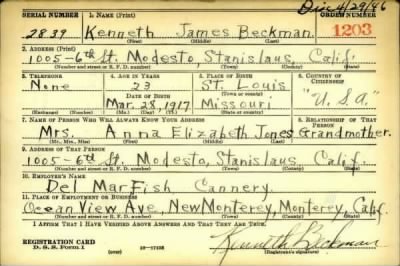 Dis 4/29/46
SERIAL NUMBER 1. NAME (Print) ORDER NUMBER
2839 Kenneth James Beckman. 1203
(First) (Middle) (Last)
2. ADDRESS (Print)
1005-6th St. Modesto, Stanislaus, Calif.
(Number and street or R. F. D. number) (Town) (County) (State)
3. TELEPHONE 4. AGE IN YEARS 5. PLACE OF BIRTH 6. COUNTRY OF CITIZENSHIP
None 23 St. Louis
DATE OF BIRTH (Town or county) "U.S.A."
Mar. 28, 1917 Missouri
(Mo.) (Day) (Yr.) (State or country)
7. NAME OF PERSON WHO WILL ALWAYS KNOW YOUR ADDRESS 8. RELATIONSHIP OF THAT PERSON
Mrs. Anna Elizabeth Jones Grandmother.
(Mr., Mrs., Miss) (First) (Middle) (Last)
9. ADDRESS OF THAT PERSON
1005-6th St. Modesto, Stanislaus, Calif.
(Number and street or R. F. D. number) (Town) (County) (State)
10. EMPLOYER'S NAME
Del Mar Fish Cannery.
11. PLACE OF EMPLOYMENT OR BUSINESS
Ocean View Ave, New Monterey, Monterey, Calif.
(Number and street or R. F. D. number) (Town) (County) (State)
I AFFIRM THAT I HAVE VERIFIED ABOVE ANSWERS AND THAT THEY ARE TRUE.
REGISTRATION CARD Kenneth Beckman
D. S. S. Form 1 (Registrant's signature)